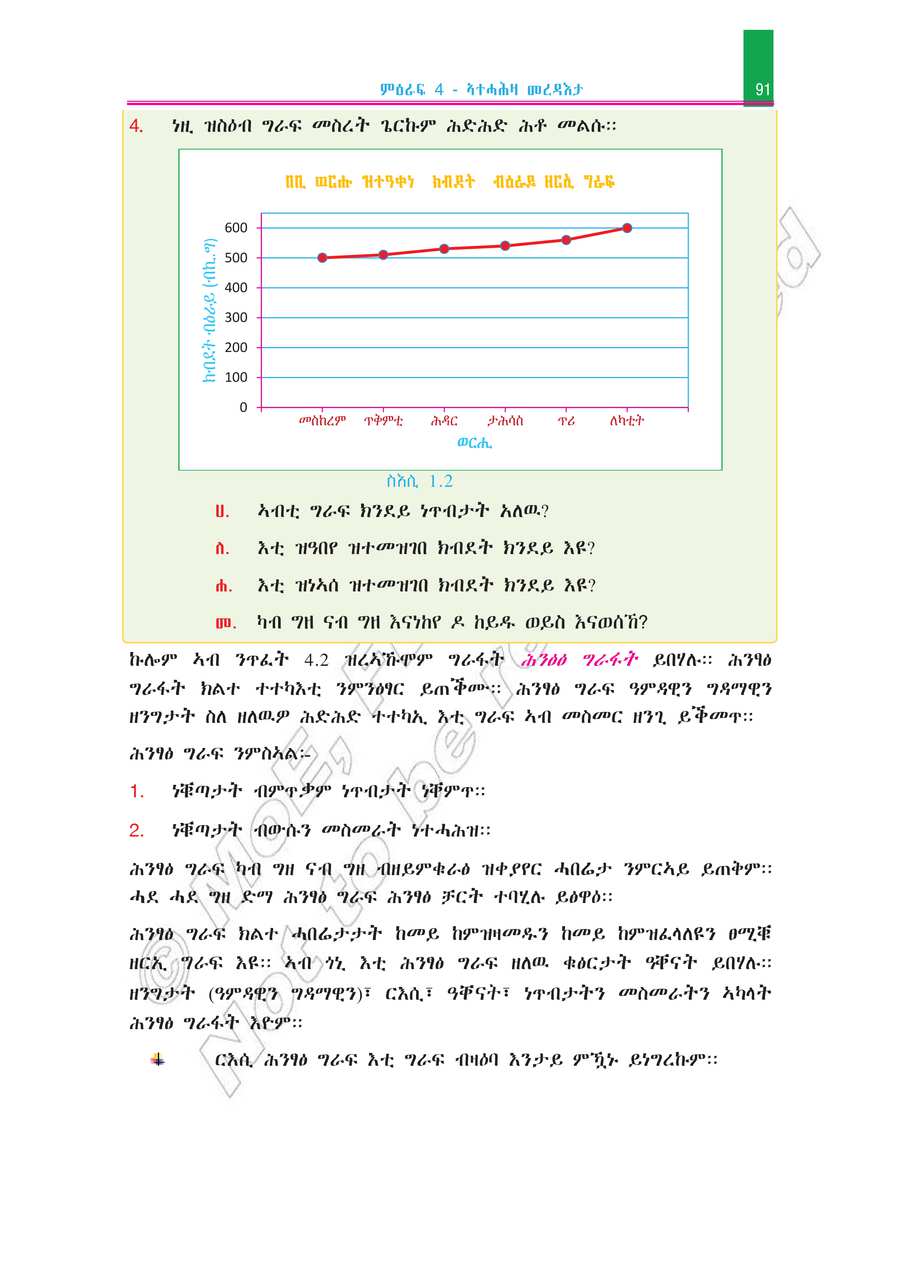 ምዕራፍ 4 - ኣተሓሕዛ መረዳእታ 91
4. ነዚ ዝስዕብ ግራፍ መስረት ጌርኩም ሕድሕድ ሕቶ መልሱ፡፡
በቢ ወርሑ ዝተዓቀነ ክብደት ብዕራይ ዘርኢ ግራፍ
ክብደት ብዕራይ (ብኪ.ግ)
600
500
400
300
200
100
0
መስከረም ጥቅምቲ ሕዳር ታሕሳስ ጥሪ ለካቲት
ወርሒ
ስእሲ 1.2
ሀ. ኣብቲ ግራፍ ክንደይ ነጥብታት አለዉ?
ለ. እቲ ዝዓበየ ዝተመዝገበ ክብደት ክንደይ እዩ?
ሐ. እቲ ዝነኣሰ ዝተመዝገበ ክብደት ክንደይ እዩ?
መ. ካብ ግዘ ናብ ግዘ እናነከየ ዶ ከይዱ ወይስ እናወሰኸ?
ኩሎም ኣብ ንጥፈት 4.2 ዝረኣኹሞም ግራፋት ሕንፃፅ ግራፋት ይበሃሉ፡፡ ሕንፃፅ
ግራፋት ክልተ ተተካእቲ ንምንፅፃር ይጠቕሙ፡፡ ሕንፃፅ ግራፍ ዓምዳዊን ግዳማዊን
ዘንግታት ስለ ዘለዉዎ ሕድሕድ ተተካኢ እቲ ግራፍ ኣብ መስመር ዘንጊ ይቕመጥ፡፡
ሕንፃፅ ግራፍ ንምስኣል፡-
1. ነቑጣታት ብምጥቃም ነጥብታት ነቐምጥ፡፡
2. ነቑጣታት ብውሱን መስመራት ነተሓሕዝ፡፡
ሕንፃፅ ግራፍ ካብ ግዘ ናብ ግዘ ብዘይምቁራፅ ዝቀያየር ሓበሬታ ንምርኣይ ይጠቅም፡፡
ሓደ ሓደ ግዘ ድማ ሕንፃፅ ግራፍ ሕንፃፅ ቻርት ተባሂሉ ይፅዋዕ፡፡
ሕንፃፅ ግራፍ ክልተ ሓበሬታታት ከመይ ከምዝዛመዱን ከመይ ከምዝፈላለዩን ፀሚቑ
ዘርኢ ግራፍ እዩ፡፡ ኣብ ጎኒ እቲ ሕንፃፅ ግራፍ ዘለዉ ቁፅርታት ዓቐናት ይበሃሉ፡፡
ዘንግታት (ዓምዳዊን ግዳማዊን)፣ ርእሲ፣ ዓቐናት፣ ነጥብታትን መስመራትን ኣካላት
ሕንፃፅ ግራፋት እዮም፡፡
ርእሲ ሕንፃፅ ግራፍ እቲ ግራፍ ብዛዕባ እንታይ ምዃኑ ይነግረኩም፡፡